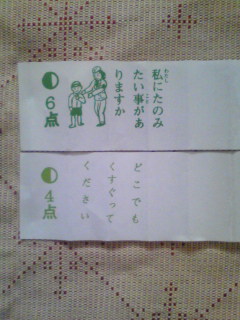 私にたのみ
たい事があ
りますか
6点
どこでも
くすぐって
ください
4点